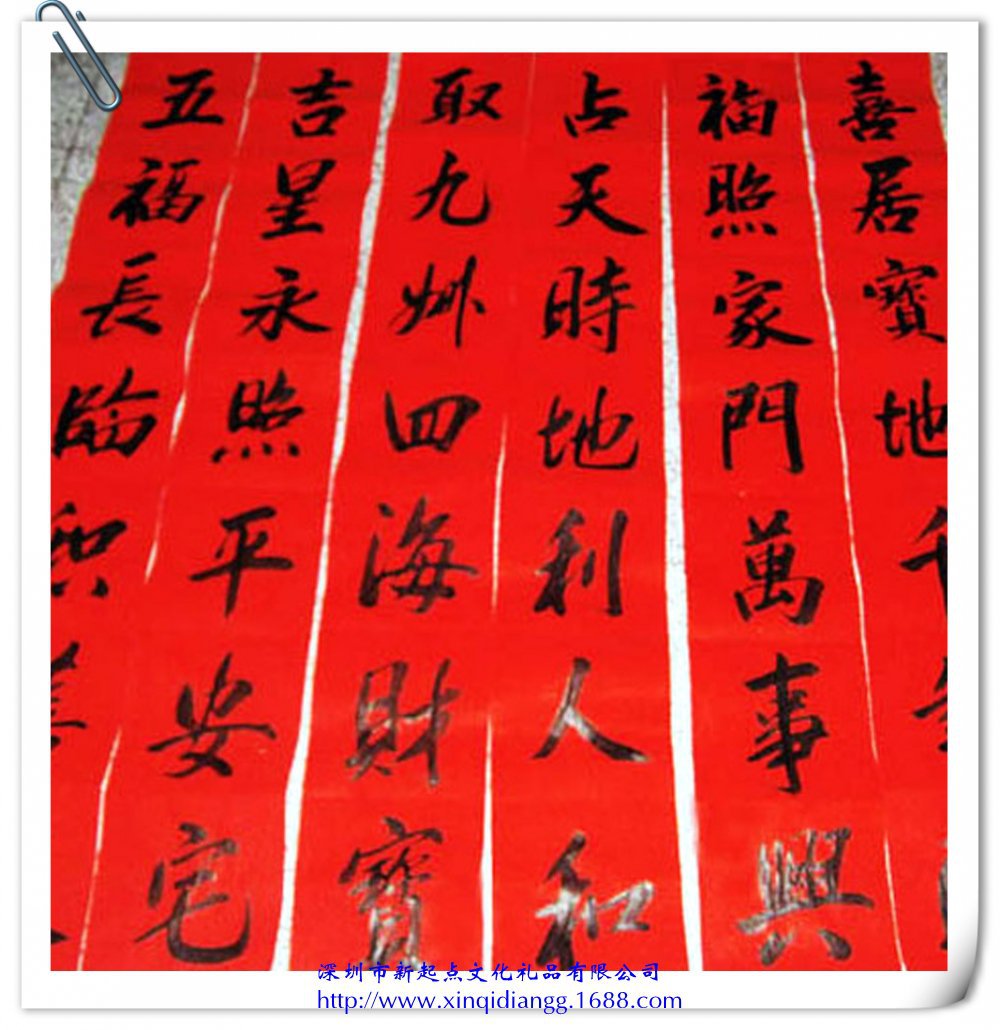 喜居寶地
福照家門萬事興
占天時地利人和
取九州四海財寶
吉星永照平安宅
五福長臨
深圳市新起点文化礼品有限公司
http://www.xinqidiangg.1688.com